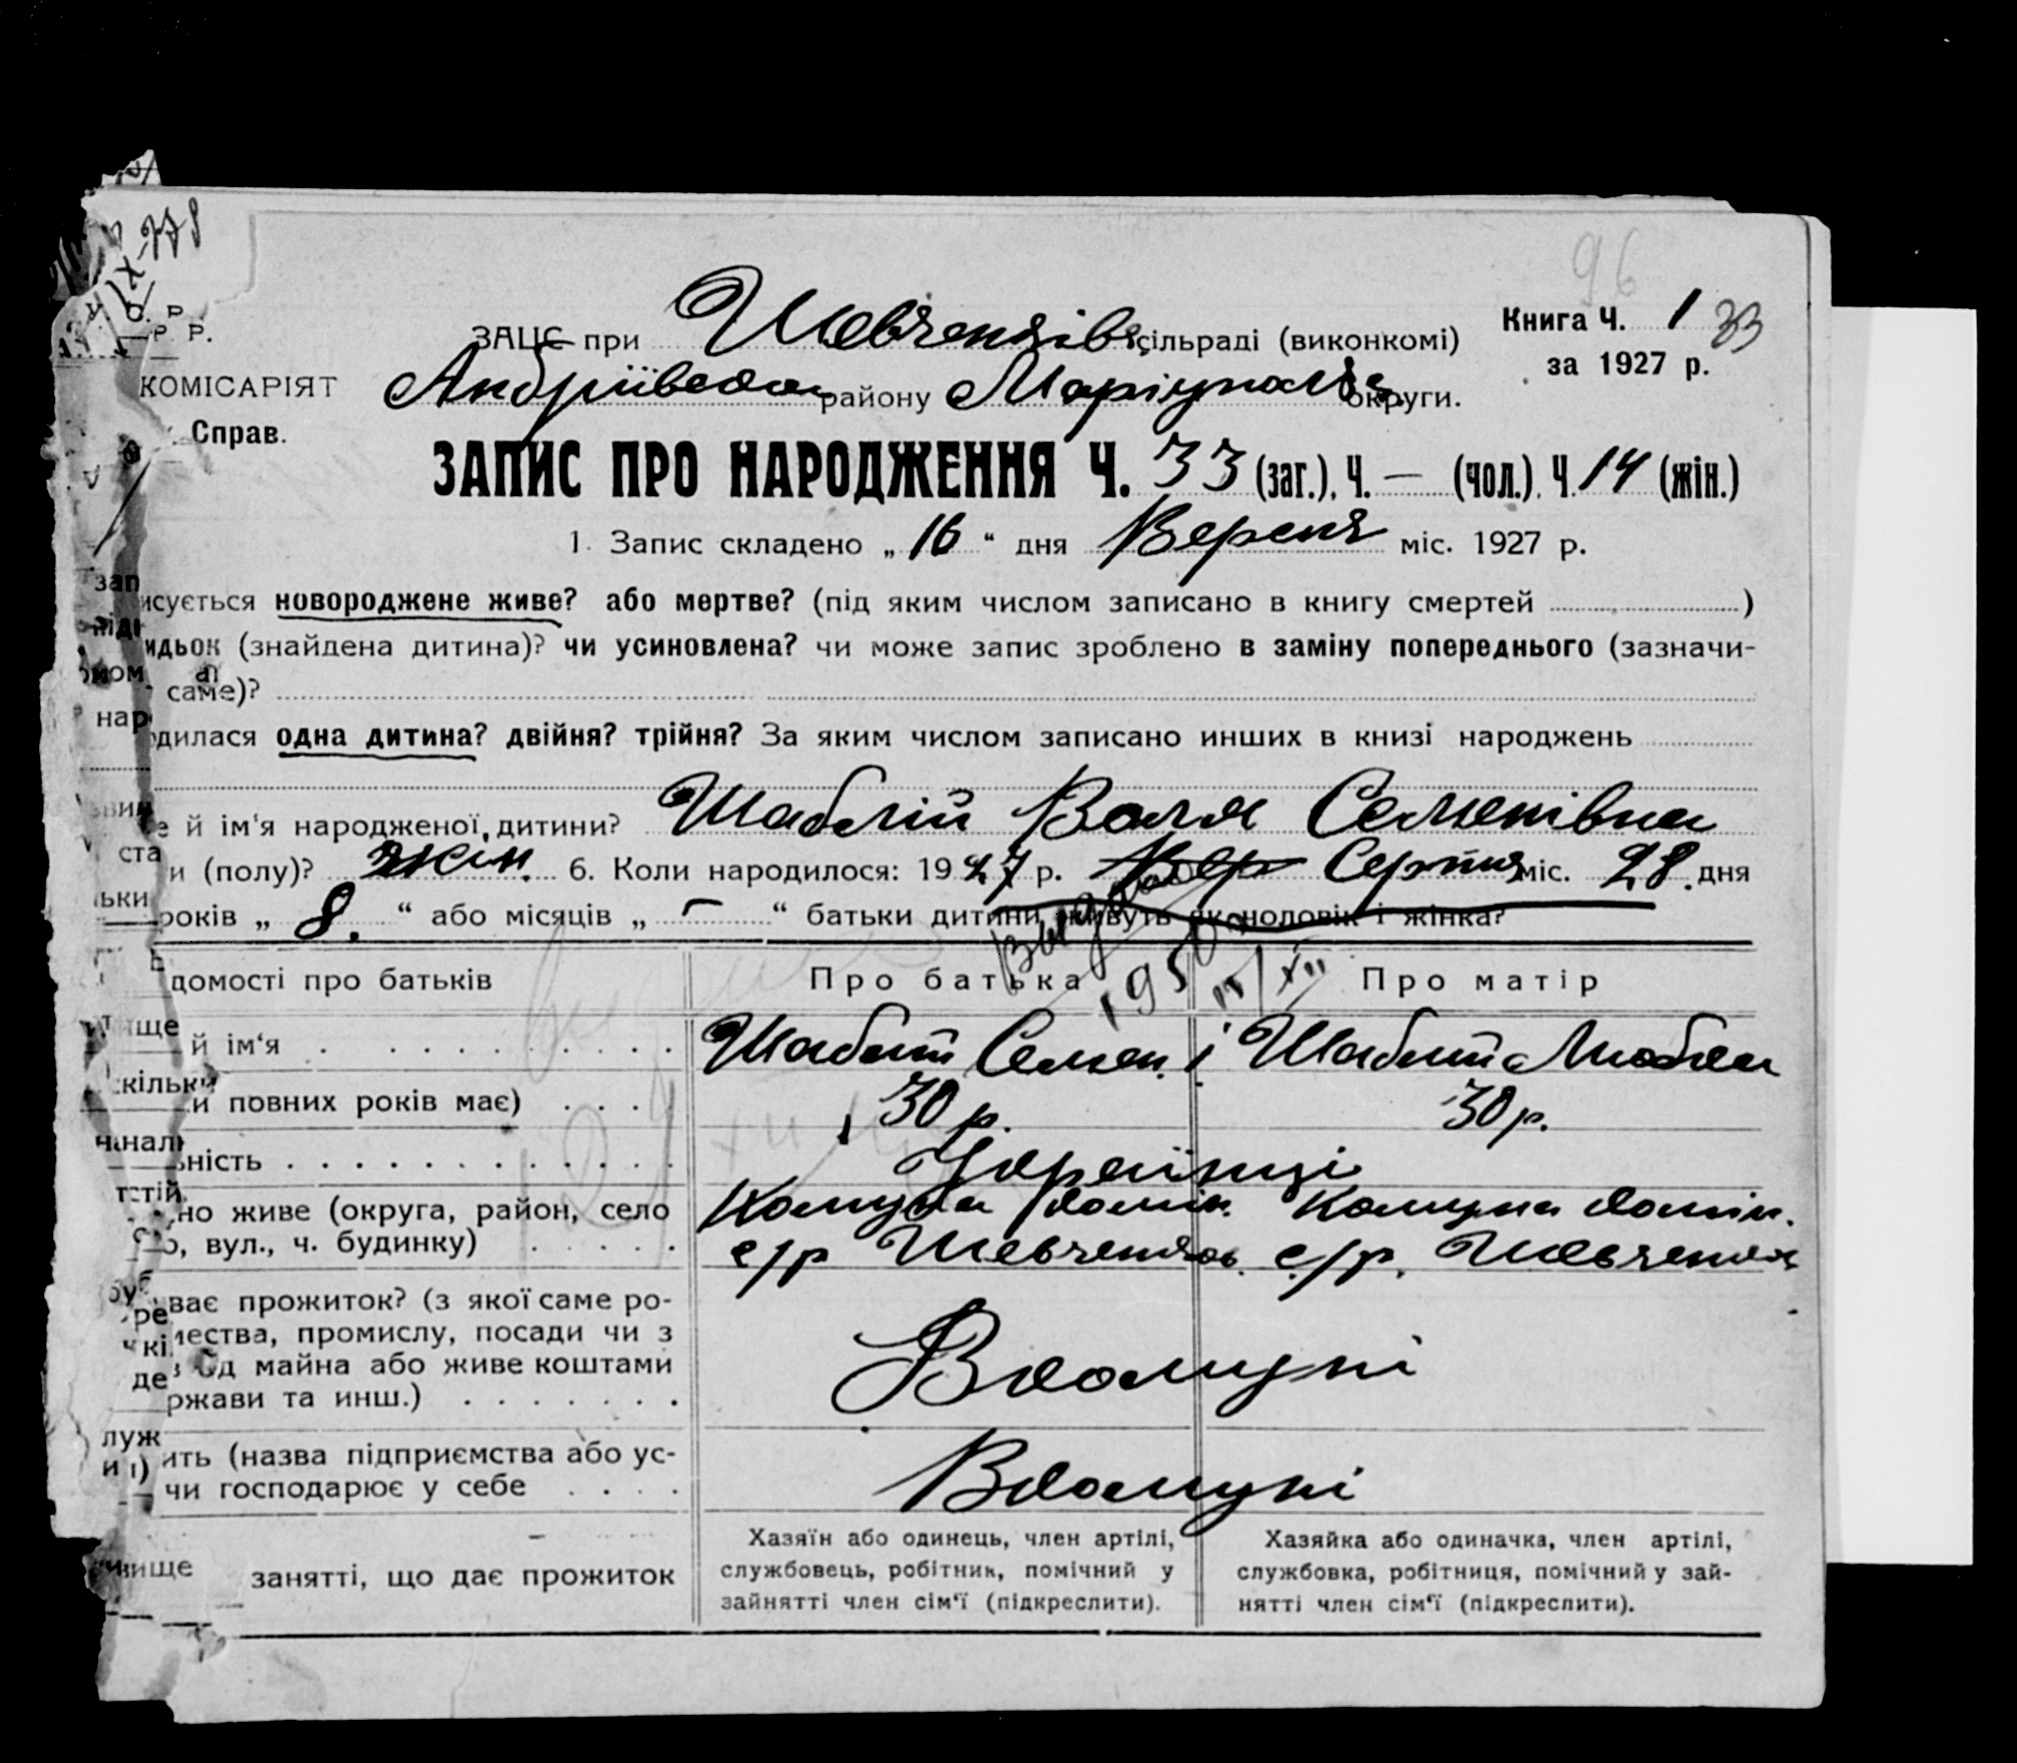 96
Р. Р.
ЗАЦС при Шевченків. сільраді (виконкомі)
Книга Ч. 1 33
за 1927 р.
КОМІСАРІЯТ
Андріївськ району Маріупольс. округи.
Справ.
ЗАПИС ПРО НАРОДЖЕННЯ Ч. 33 (заг.), Ч. — (чол.). Ч. 14 (жін.)
1. Запис складено „ 16 “ дня Вересня міс. 1927 р.
исується новороджене живе? або мертве? (під яким числом записано в книгу смертей )
идьок (знайдена дитина)? чи усиновлена? чи може запис зроблено в заміну попереднього (зазначи-
саме)?
дилася одна дитина? двійня? трійня? За яким числом записано инших в книзі народжень
е й ім'я народженої дитини? Шаблій Валя Семенівна
и (полу)? жін. 6. Коли народилося: 1927 р. Вер Серпня міс. 28. дня
років „ 8. “ або місяців „ – “ батьки дитини живуть як чоловік і жінка?
домості про батьків
Про батька
Про матір
1950
й ім'я Шаблій Семен. Шаблій Любов
и повних років має) 30 р. 30 р.
ність Українці
но живе (округа, район, село
о, вул., ч. будинку)
Комуна Комін. Комуна Комін.
с/р Шевченков. с/р. Шевченков
ває прожиток? (з якої саме ро-
мества, промислу, посади чи з
од майна або живе коштами
ржави та инш.)
В комуні
ить (назва підприємства або ус-
чи господарює у себе
В комуні
занятті, що дає прожиток
Хазяїн або одинець, член артілі,
службовець, робітник, помічний у
зайнятті член сім'ї (підкреслити).
Хазяйка або одиначка, член артілі,
службовка, робітниця, помічний у зай-
нятті член сім'ї (підкреслити).